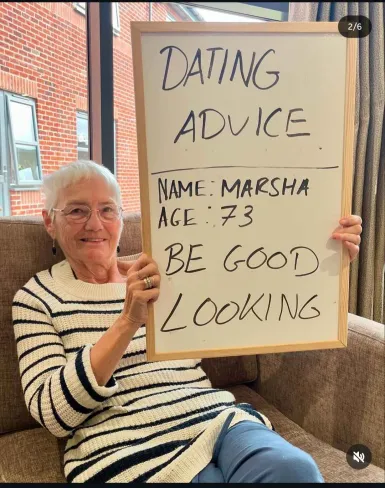 2/6
DATING
ADVICE
NAME: MARSHA
AGE: 73
BE GOOD
LOOKING